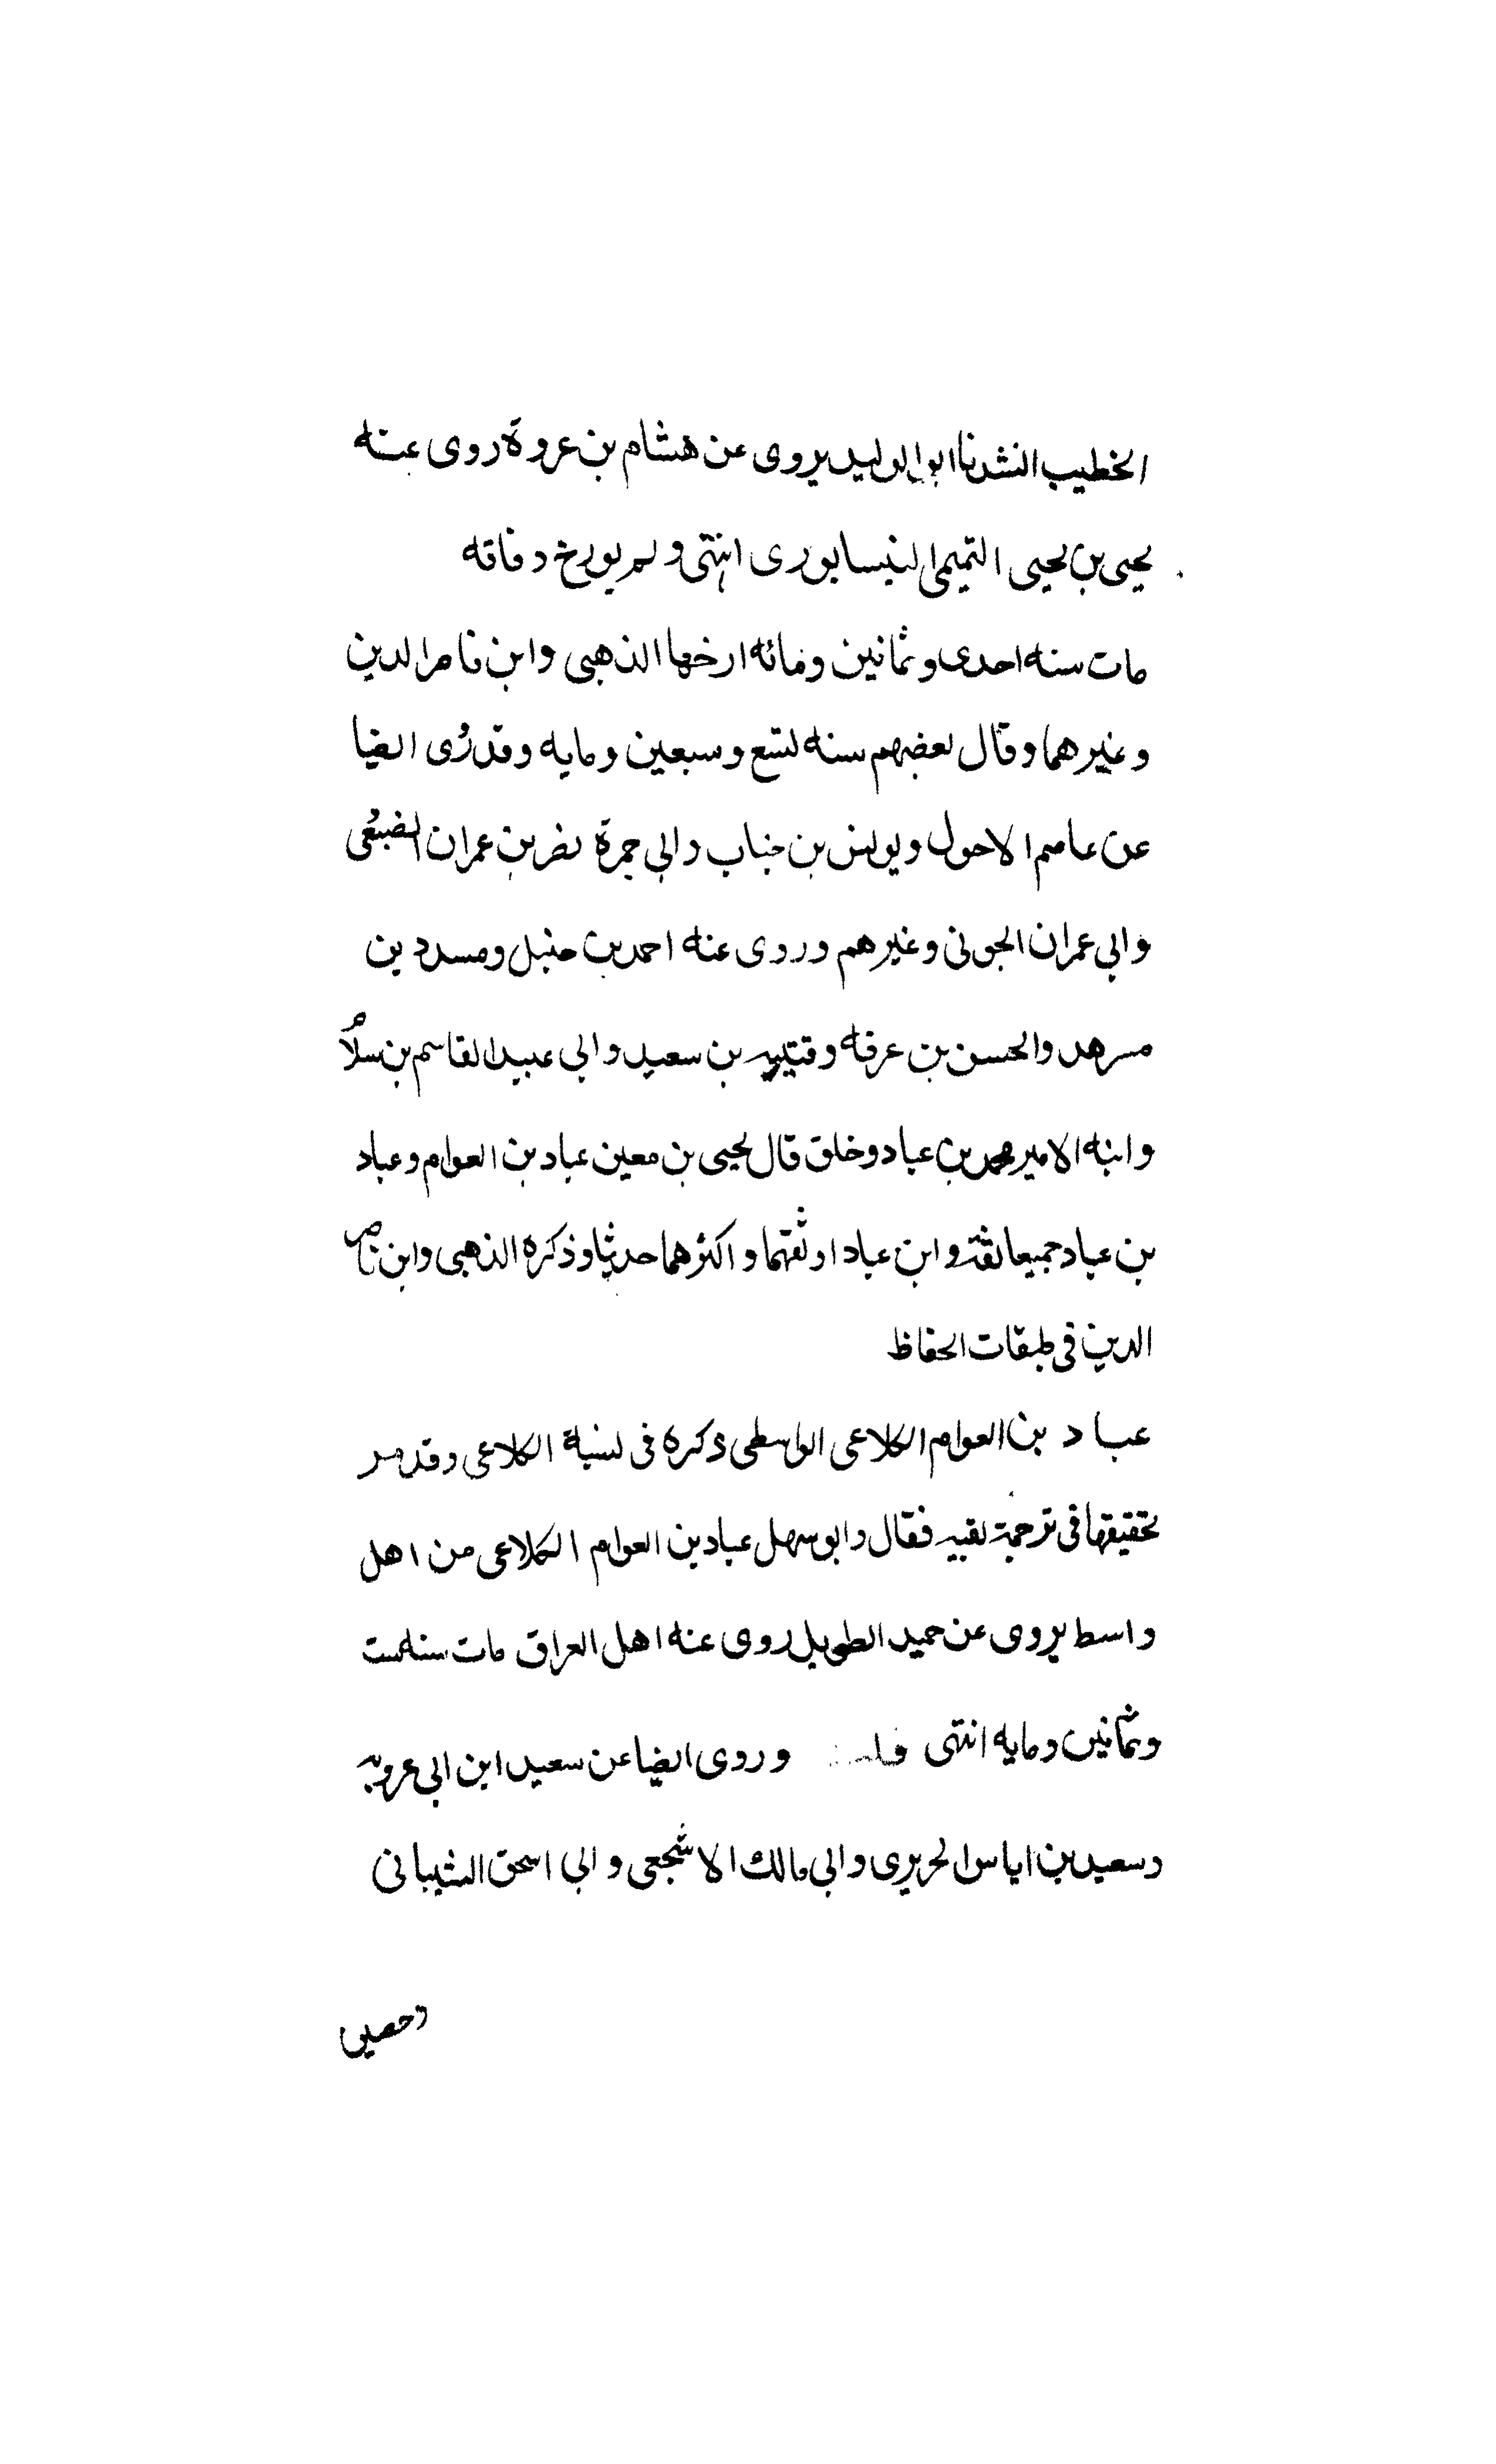 الخطيب انشدنا ابو الوليد يروى عن هشام بن عروة روى عنه
يحيى بن يحيى التميمى النيسابورى انتهى ولم يورخ وفاته
مات سنه احدى وثمانين ومائه ارخها الذهبى وابن ناصر الدين
وغيرهما وقال بعضهم سنه تسع وسبعين ومايه وقد رُوى ايضا
عن عاصم الاحول ويونس بن خباب وابى جمرة نصر بن عمران الضبُعى
وابى عمران الجونى وغيرهم وروى عنه احمد بن حنبل ومسدد بن
مسرهد والحسن بن عرفه وقتيبه بن سعيد وابى عبيد القاسم بن سلام
وابنه الامير محمد بن عباد وخلق قال يحيى بن معين عباد بن العوام وعباد
بن عباد جميعا ثقة وابن عباد اوثقهما واكثرهما حديثا وذكره الذهبى وابن ناصر
الدين فى طبقات الحفاظ
عباد بن العوام الكلاعى الواسطى ذكره فى نسبة الكلاعى وقد مر
تحقيقها فى ترجمة بقيه فقال وابو سهل عباد بن العوام الكلاعى من اهل
واسط يروى عن حميد الطويل روى عنه اهل العراق مات سنه ست
وثمانين ومايه انتهى وروى ايضا عن سعيد ابن ابى عروبه
وسعيد بن اياس الجريرى وابى مالك الاشجعى وابى اسحق الشيبانى
وحصين